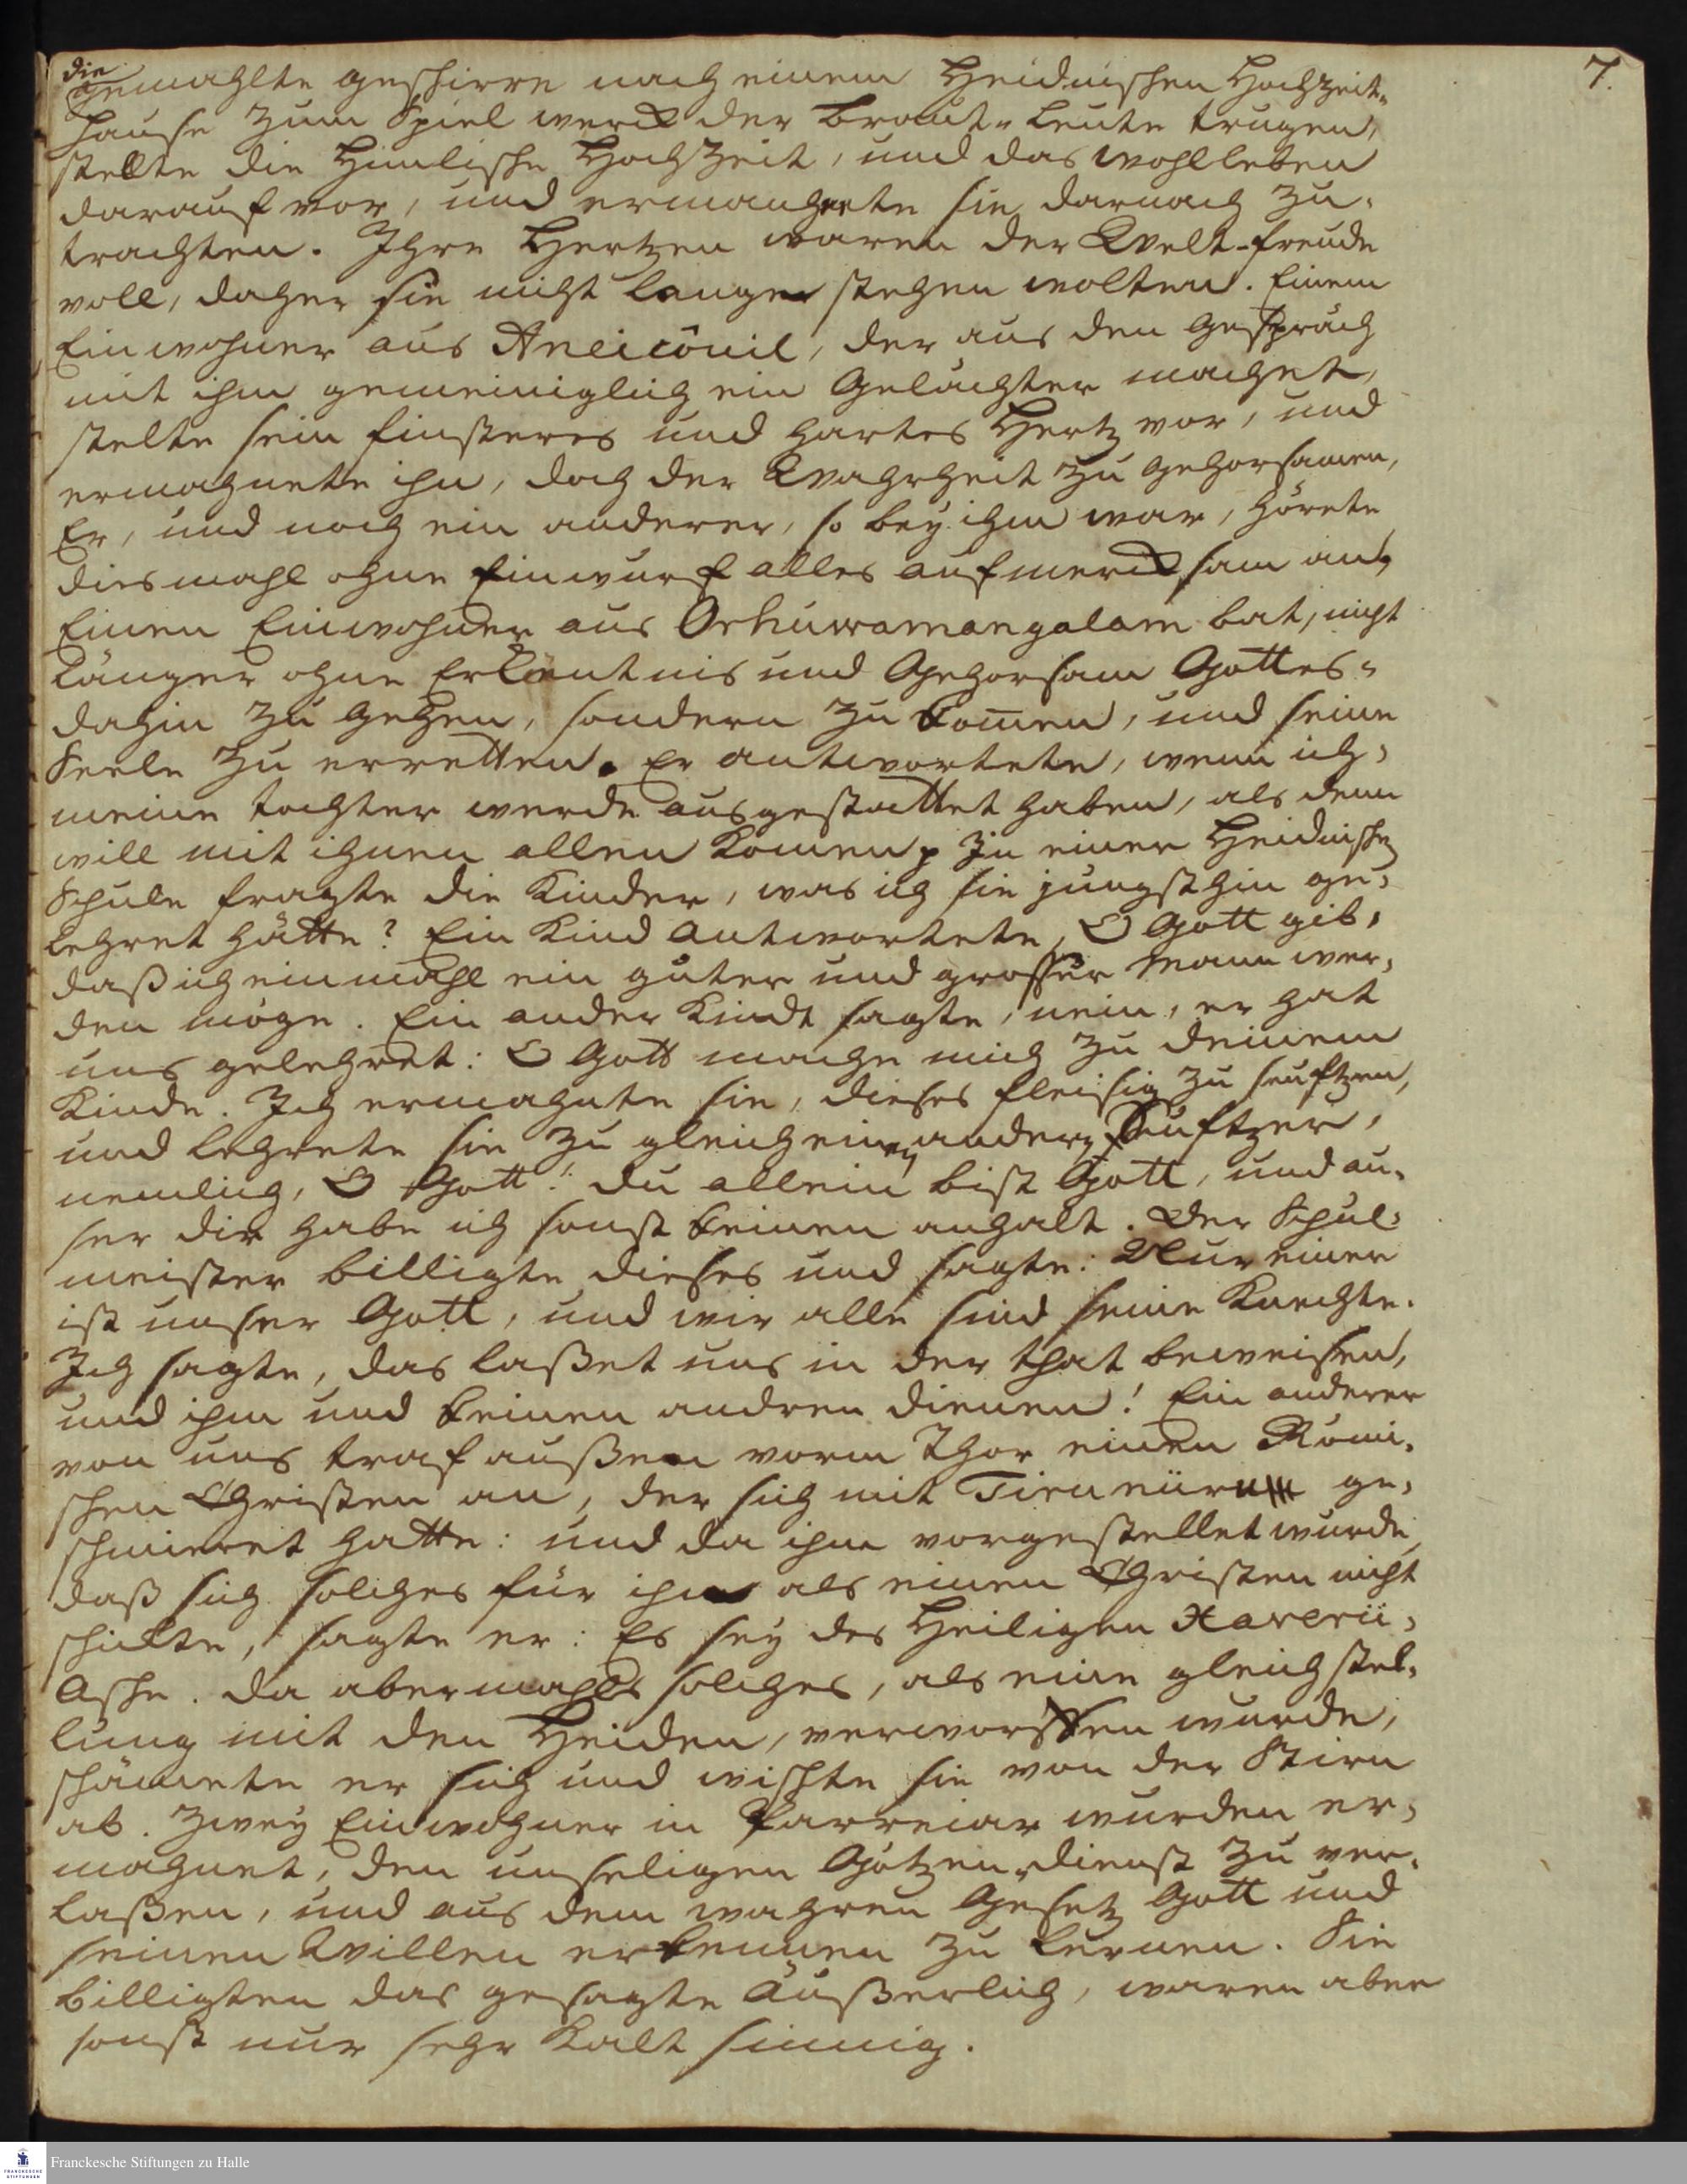 7.
die
gemahlte geschirre nach einem Heidnischen Hochzeit-
Hause zum Spiel werck der Braut-Leute trugen,
stellte die Himlische Hochzeit, und das wohlleben
darauf vor, und ermahnete sie darnach zu-
trachten. Ihre Hertzen waren der Welt-freude
voll, daher sie nicht langer stehen wolten. Einem
Einwohner aus Aneicôuil, der aus den Gespräch
mit ihm gemeiniglich ein Gelächter machet,
stelte sein finsteres und hartes Hertz vor, und
ermahnete ihn, doch der Wahrheit zu gehorsamen,
Er, und noch ein anderer, so bey ihm war, hörete
diesmahl ohne Einwurf alles aufmercksam an,
Einen Einwohner aus Orhuwamangalam bat, nicht
länger ohne Erkäntnis und Gehorsam Gottes-
dahin zu gehen, sondern zu komen, und seine
Seele zu erretten. Er antwortete, wenn ich-
meine tochter werde ausgestattet haben, als denn
will mit ihnen allen komen. In einer Heidnischen
Schule fragte die Kinder, was ich sie jüngsthin ge-
lehret hätte? Ein Kind antwortete, O Gott gib,
daß ich einmahl ein guter und grosser Mann wer-
den möge. Ein ander Kindt sagte, nein, er hat
uns gelehret: O Gott mache mich zu deinem
Kinde. Ich ermahnte sie, dieses fleisig zu seuftzen,
und lehrete sie zu gleich einen andern Seuftzer,
nemlich, O Gott! du allein bist Gott, und au-
ser dir habe ich sonst keinen anhalt. Der Schul-
meister billigte dieses und sagte: Nur einer
ist unser Gott, und wir alle sind seine Knechte.
Ich sagte, das laßet uns in der that beweisen,
und ihm und keinen andren dienen! Ein anderer
von uns traf außen vorm Thor einen Römi-
schen Christen an, der sich mit Tirunüru ge-
schmieret hatte: und da ihm vorgestellet wurde,
daß sich solches für ihn als einen Christen nicht
schickte, sagte er: Es sey des Heiligen Xaverii-
Asche. Da abermahls solches, als eine gleichstel-
lung mit den Heiden, verworffen wurde,
schämete er sich und wischte sie von der Stirn
ab. Zwey Einwohner in Parreiar wurden er-
mahnet, den unseligen Götzen-dienst zu ver-
laßen, und aus dem wahren Gesetz Gott und
seinen Willen erkennen zu lernen. Sie
billigten das gesagte äußerlich, waren aber
sonst nur sehr kalt sinnig.
Franckesche Stiftungen zu Halle
FRANCKESCHE
STIFTUNGEN